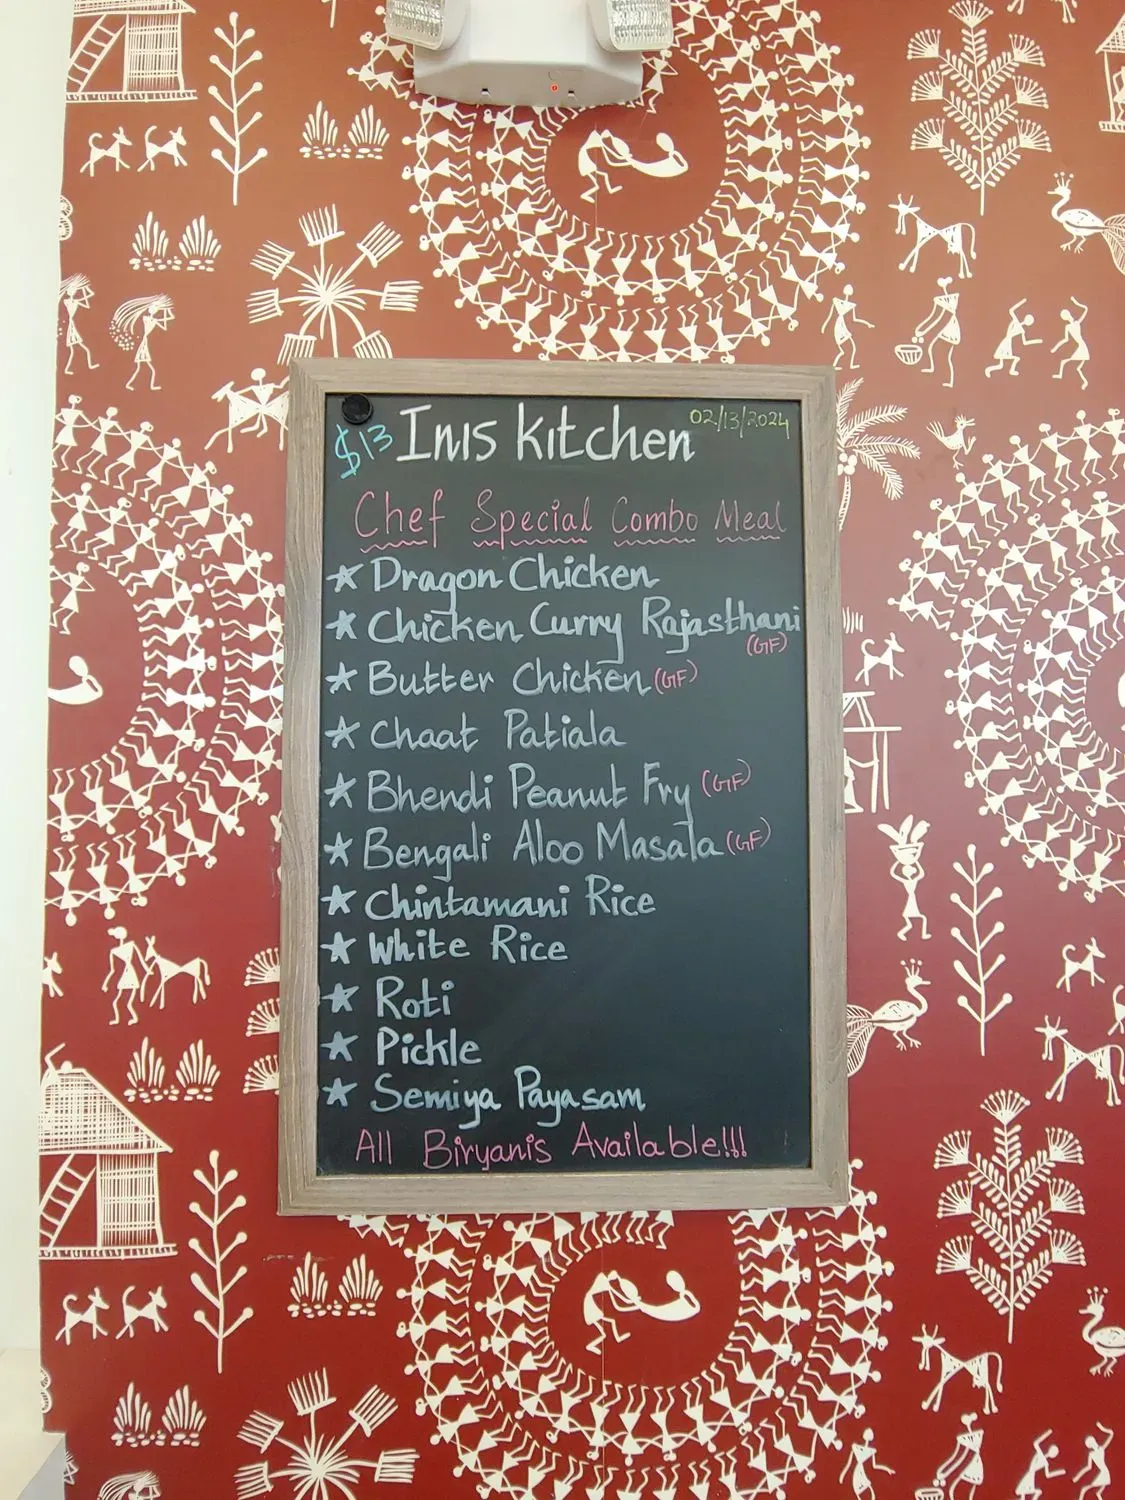 $13 Inis Kitchen 02/13/2024
Chef Special Combo Meal
★ Dragon Chicken
★ Chicken Curry Rajasthani
(GF)
★ Butter Chicken (GF)
★ Chaat Patiala
★ Bhendi Peanut Fry (GF)
★ Bengali Aloo Masala (GF)
★ Chintamani Rice
★ White Rice
★ Roti
★ Pickle
★ Semiya Payasam
All Biryanis Available!!!